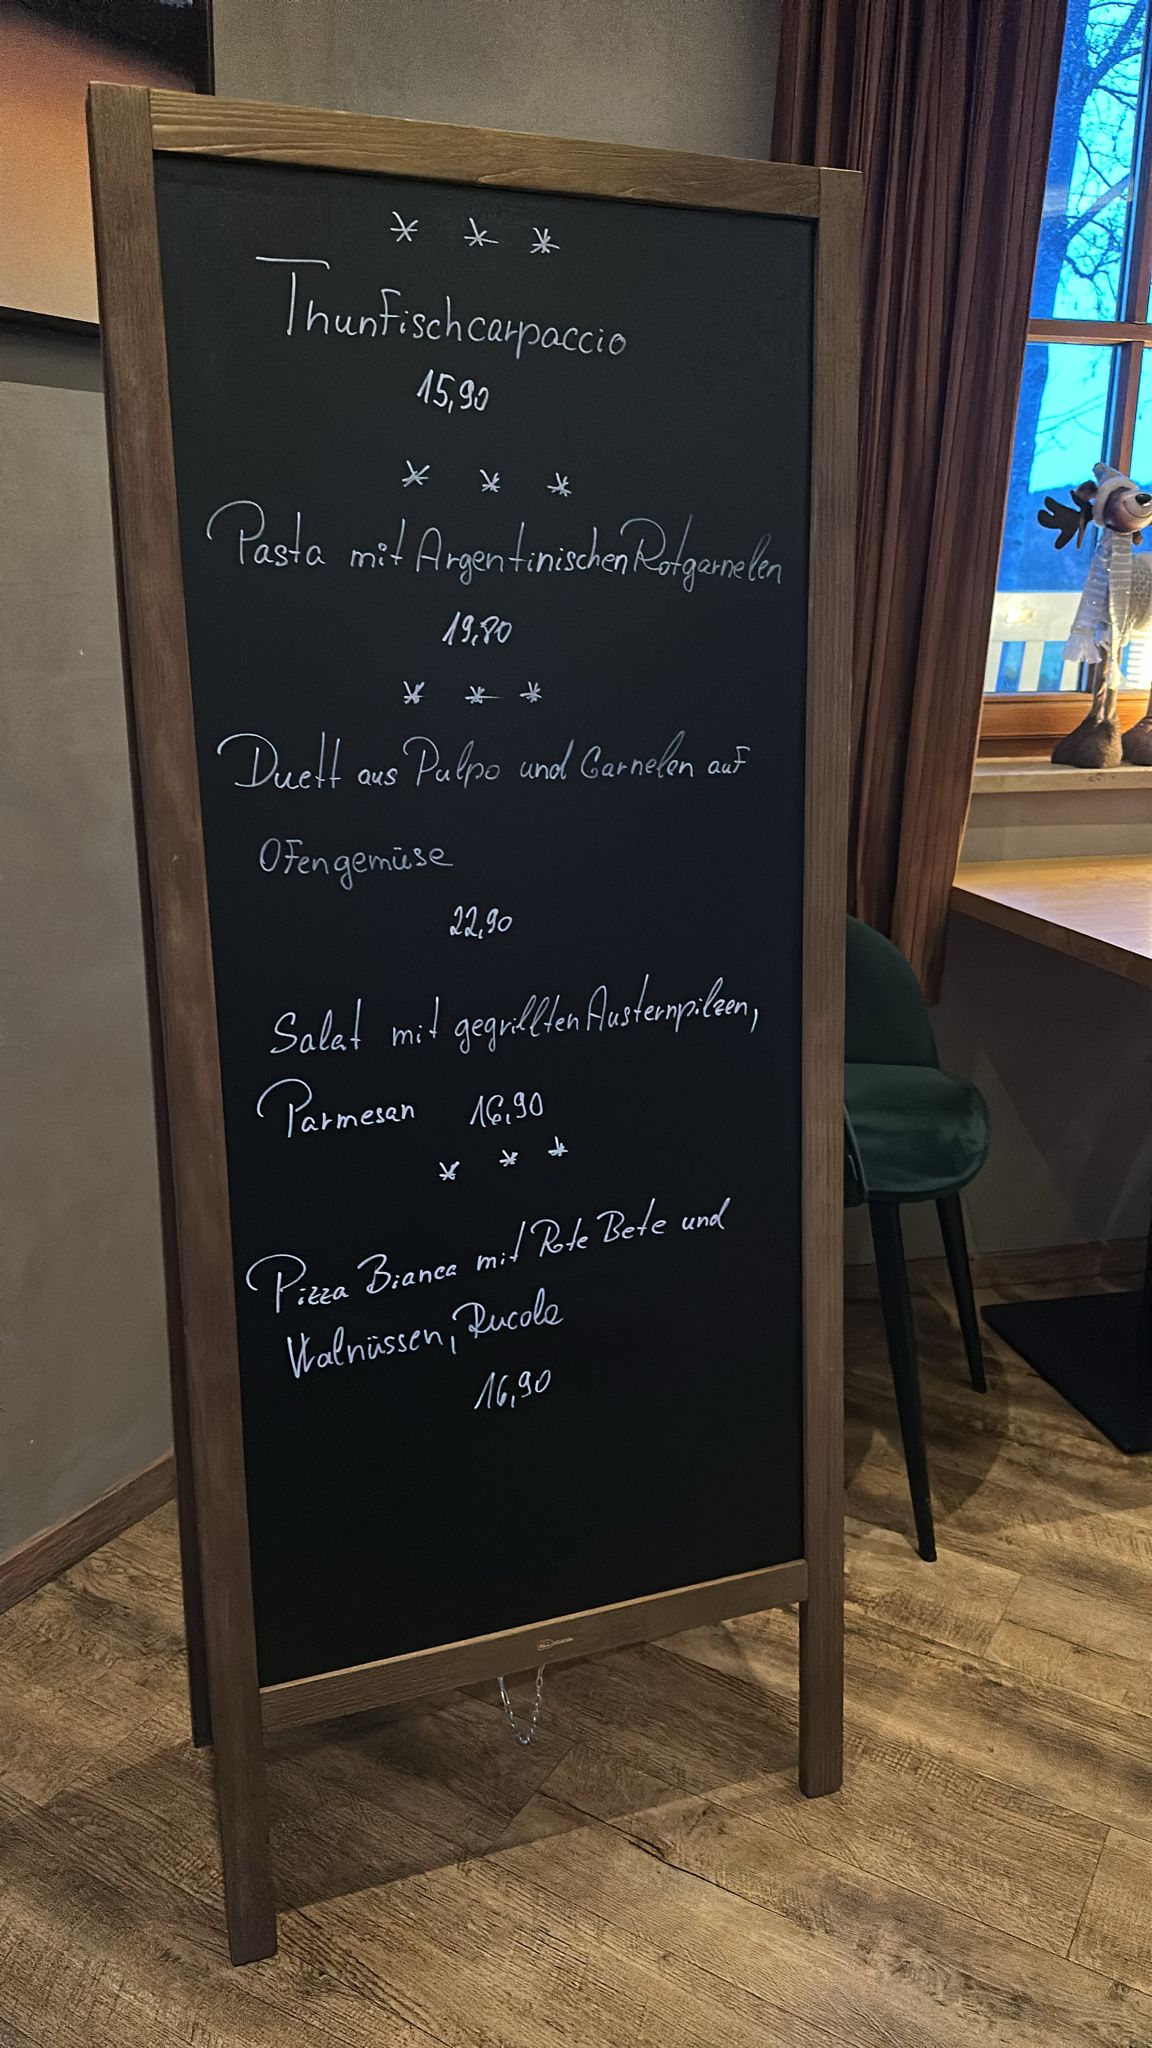 * * *
Thunfischcarpaccio
15,90
* * *
Pasta mit Argentinischen Rotgarnelen
19,80
* * *
Duett aus Pulpo und Garnelen auf
Ofengemüse
22,90
Salat mit gegrillten Austernpilzen,
Parmesan 16,90
* * *
Pizza Bianca mit Rote Bete und
Walnüssen, Rucola
16,90